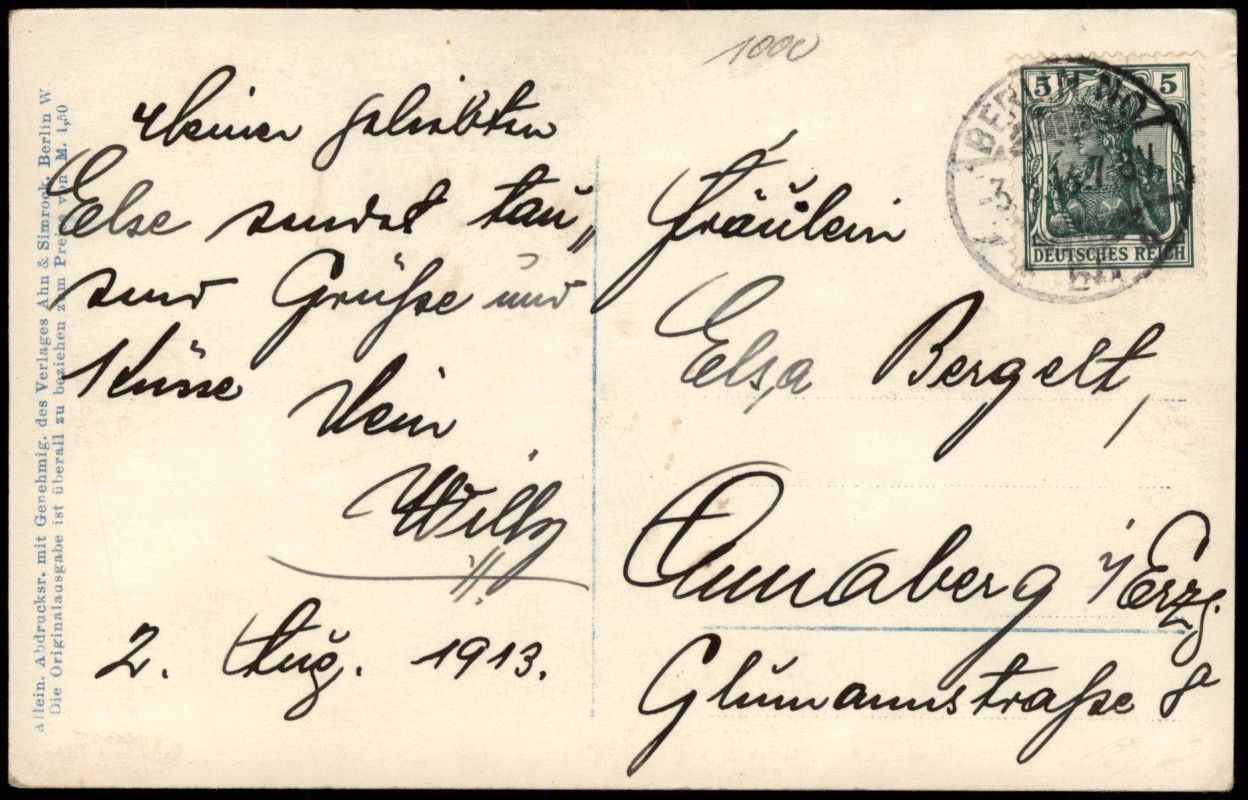 1000
Meiner geliebten
Else sendet tau„
send Grüsse und
Küsse Dein
Willy
2. Aug. 1913.
Fräulein
Elsa Bergelt,
Annaberg i/Erzg.
straße 8
5 5
DEUTSCHES REICH
BERLIN NO
Allein. Abdrucksr. mit Genehmig. des Verlages Ahn & Simrock, Berlin W
Die Originalausgabe ist überall zu beziehen zum Preise von M. 1,50